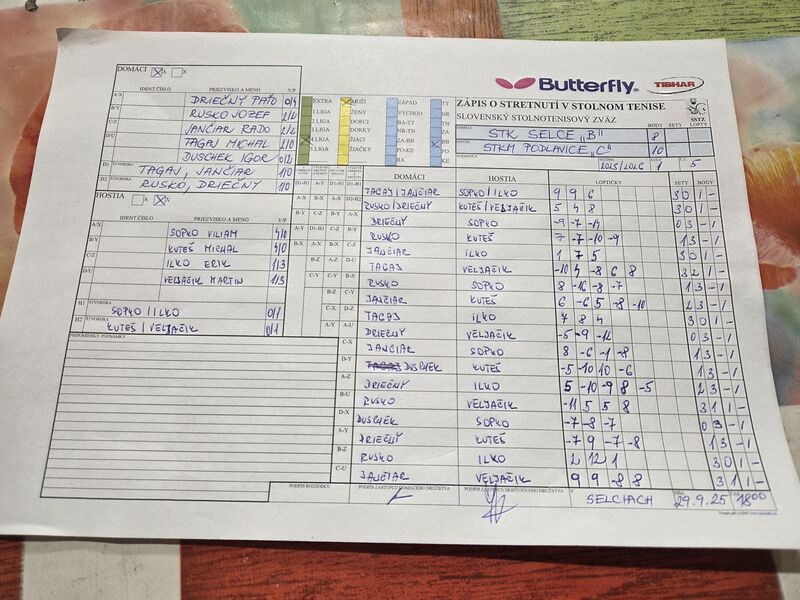 DOMÁCI A X
Butterfly TIBHAR
IDENT.ČÍSLO PRIEZVISKO A MENO V/P
A/X DRIEČNY PAŤO 0/4
B/Y RUSKO JOZEF 2/2
C/Z JANČIAR RADO 2/2
D/U TAGAJ MICHAL 2/0
DUSCHEK IGOR 0/2
D1 ŠTVORHRA TAGAJ, JANČIAR 1/0
D2 ŠTVORHRA RUSKO, DRIEČNY 1/0
EXTRA MUŽI ZÁPAD TT
1.LIGA ŽENY VÝCHOD NR
2.LIGA DORCI BA-TT TN
3.LIGA DORKY NR-TN ZA
4.LIGA ŽIACI ZA-BB BB
5.LIGA ŽIAČKY PO-KE PO
KE
ZÁPIS O STRETNUTÍ V STOLNOM TENISE
SLOVENSKÝ STOLNOTENISOVÝ ZVÄZ
SSTZ
BODY SETY LOPTY
DOMÁCI STK SELCE "B" 8
HOSTIA STKM PODLAVICE "C" 10
ROZHODCA 2025/2026 5
HOSTIA A X
IDENT ČÍSLO PRIEZVISKO A MENO V/P
A/X SOPKO VILIAM 4/0
B/Y KUTEŠ MICHAL 4/0
C/Z ILKO ERIK 1/3
D/U VELJAČIK MARTIN 1/3
H1 ŠTVORHRA SOPKO / ILKO 0/1
H2 ŠTVORHRA KUTEŠ / VELJAČIK 0/1
PRIPOMIENKY, POZNÁMKY
DOMÁCI HOSTIA LOPTIČKY SETY BODY
TAGAJ / JANČIAR SOPKO / ILKO 9 9 6 3 0 1 -
RUSKO / DRIEČNY KUTEŠ / VELJAČIK 5 4 8 3 0 1 -
DRIEČNY SOPKO -9 -7 -14 0 3 - 1
RUSKO KUTEŠ 7 -7 -10 -9 1 3 - 1
JANČIAR ILKO 1 7 5 3 0 1 -
TAGAJ VELJAČIK -10 4 -8 6 8 3 2 1 -
RUSKO SOPKO 8 -16 -8 -7 1 3 - 1
JANČIAR KUTEŠ 6 -6 5 -8 -10 2 3 - 1
TAGAJ ILKO 7 8 4 3 0 1 -
DRIEČNY VELJAČIK -5 -9 -12 0 3 - 1
JANČIAR SOPKO 8 -6 -1 -8 1 3 - 1
DUSCHEK KUTEŠ -5 -10 10 -6 1 3 - 1
DRIEČNY ILKO 5 -10 -9 8 -5 2 3 - 1
RUSKO VELJAČIK -11 5 5 8 3 1 1 -
DUSCHEK SOPKO -7 -8 -7 0 3 - 1
DRIEČNY KUTEŠ -7 9 -7 -8 1 3 - 1
RUSKO ILKO 2 12 1 3 0 1 -
JANČIAR VELJAČIK 9 9 -8 8 3 1 1 -
PODPIS ROZHODCU PODPIS ZÁSTUPCU DOMÁCEHO DRUŽSTVA PODPIS ZÁSTUPCU HOSŤUJÚCEHO DRUŽSTVA V SELCIACH DŇA 29.9.25 1800